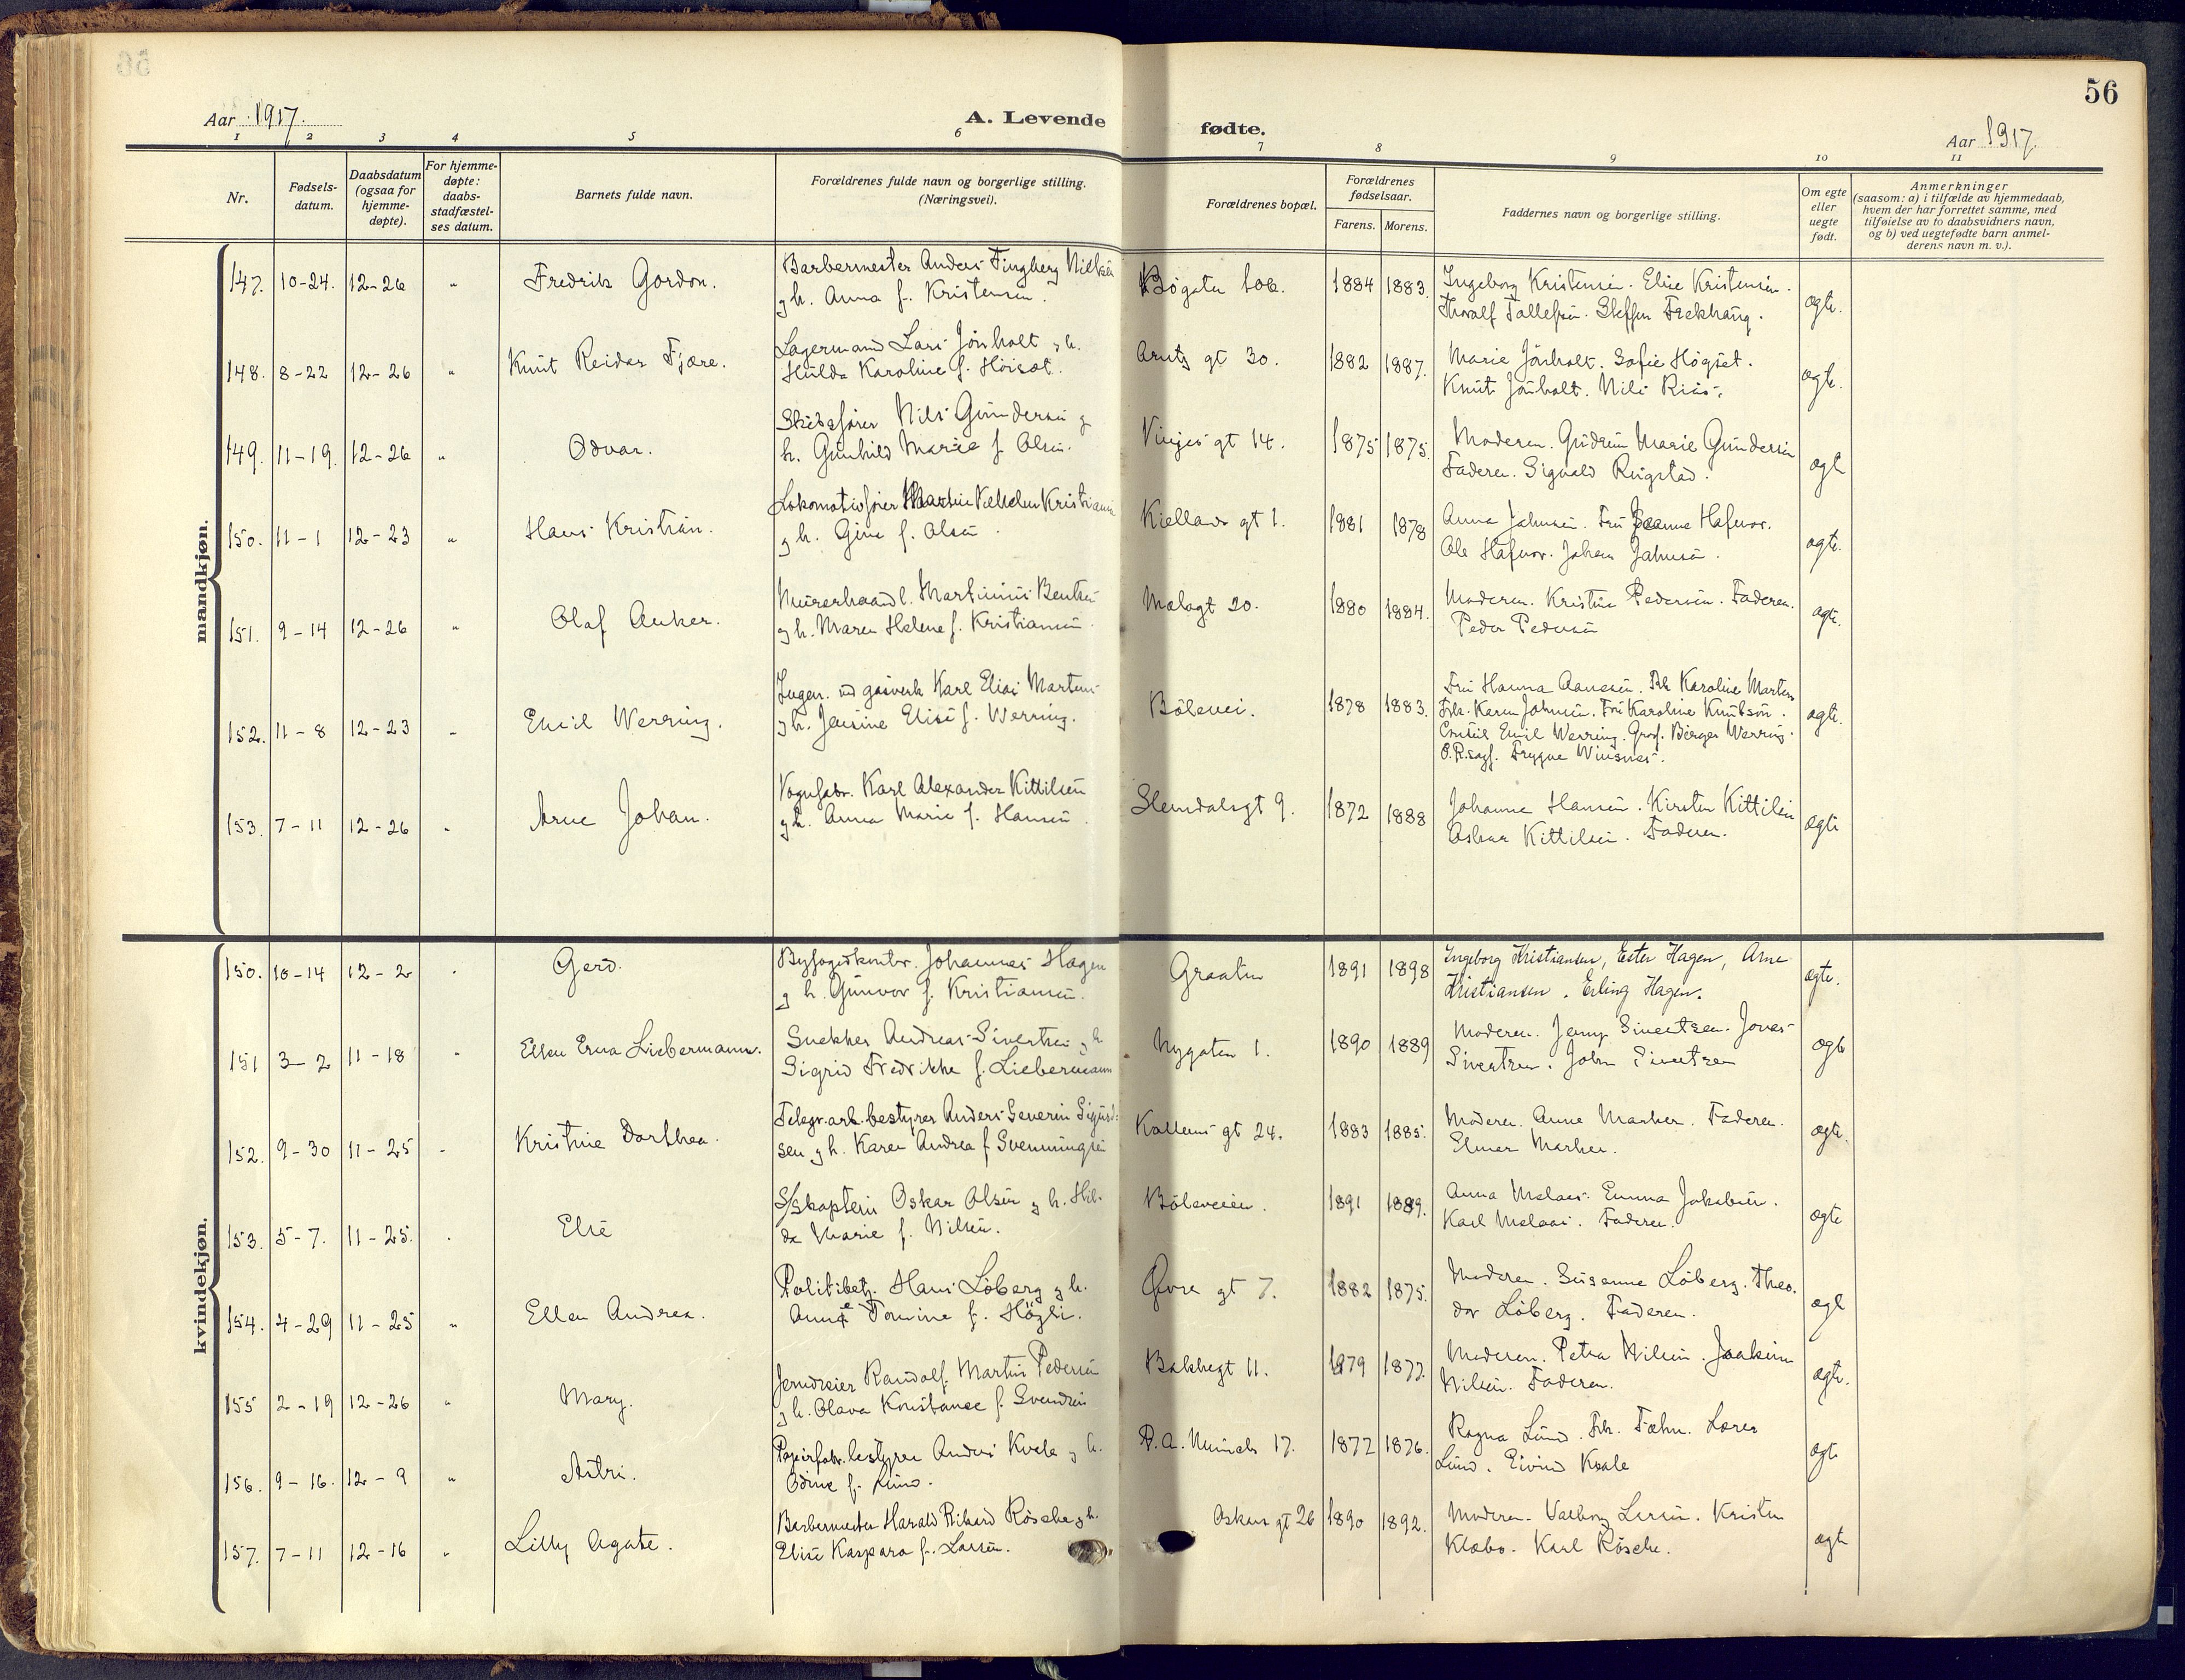 56
Aar 1917.
A. Levende fødte.
Aar 1917.
1 2 3 4 5 6 7 8 9 10 11
Nr.
Fødsels-
datum.
Daabsdatum
(ogsaa for
hjemme-
døpte).
For hjemme-
døpte:
daabs-
stadfæstel-
ses datum.
Barnets fulde navn.
Forældrenes fulde navn og borgerlige stilling.
(Næringsvei).
Forældrenes bopæl.
Forældrenes
fødselsaar.
Farens. Morens.
Faddernes navn og borgerlige stilling.
Om egte
eller
uegte
født.
Anmerkninger
(saasom: a) i tilfælde av hjemmedaab,
hvem der har forrettet samme, med
tilføielse av to daabsvidners navn,
og b) ved uegtefødte barn anmel-
derens navn m. v.).
mandkjøn.
147. 10-24. 12-26 " Fredrik Gordon.
Barbermester Anders Tingberg Nilsen
g h. Anna f. Kristensen.
Bögaten 106. 1884 1883.
Ingeborg Kristensen. Elise Kristensen.
Thoralf Tollefsen. Steffen Frekhaug.
egte.
148. 8-22 12-26 " Knut Reidar Fjære.
Lagermand Lars Jönholt g h.
Hulda Karoline f. Höisæt.
Arntz gt 30. 1882 1887.
Marie Jönholt. Sofie Högset.
Knut Jönholt. Nils Riis.
egte.
149. 11-19. 12-26 " Odvar.
Skibsfører Nils Gundersen g
h. Gunhild Marie f. Olsen.
Vinjes gt 14. 1875 1875.
Moderen. Gudrun Marie Gundersen
Faderen. Sigvald Ringstad.
egt
150. 11-1 12-23 " Hans Kristian.
Lokomotivfører Vilhelm Kristiansen
g h. Gina f. Olsen.
Kiellands gt 1. 1881 1878
Anna Jahnsen. Fru Hafnor.
Ole Hafnor. Johan Jahnsen.
egte.
151. 9-14 12-26 " Olaf Anker.
Murerhaandl. Martinius Bentsen
g h. Maren Helene f. Kristiansen.
Molagt 20. 1880 1884.
Moderen. Kristine Pedersen. Faderen.
Peder Pedersen
egte.
152. 11-8 12-23 " Emil Werring.
Ingen. ved gasverk Karl Elias Martens
g h. Jensine Elise f. Werring.
Bölevei. 1878 1883.
Fru Hanna Aanesen. Frk Karoline Martens
Frk. Karen Johnsen. Fru Karoline Knutson.
Emil Werring. Gros. Birger Werring.
O.R.sagf. Trygve Wiisnes.
egte.
153. 7-11 12-26 " Arne Johan.
Vognfabr. Karl Alexander Kittilsen
g h. Anna Marie f. Hansen.
Slemdalsgt 9. 1872 1888
Johanne Hansen. Kirsten Kittilsen
Oskar Kittilsen. Faderen.
egte
kvindekjøn.
150. 10-14 12-2 " Gerd.
Byfogedkontor. Johannes Hagen
g h. Gunvor f. Kristiansen.
Graaten 1891 1898
Ingeborg Kristiansen, Ester Hagen, Arne
Kristiansen. Erling Hagen.
egte.
151 3-2 11-18 " Ellen Erna Liebermann.
Snekker Andreas Sivertsen g h
Sigrid Fredrikke f. Liebermann
Nygaten 1. 1890 1889
Moderen. Jenny Sivertsen. Jonas
Sivertsen. John Sivertsen
egte
152. 9-30 11-25 " Kristine Dorthea.
Telegr.arb.bestyrer Anders Severin Sigurd-
sen g h. Karen Andrea f. Svenningsen
Kallens gt 24. 1883 1885.
Moderen. Anne Marker. Faderen.
Elmer Marker.
egte.
153. 5-7. 11-25. " Else
S/skaptein Oskar Olsen g h. Hil-
da Marie f. Nilsen.
Böleveien. 1891 1889.
Anna Melaas. Emma Jakobsen.
Karl Melaas. Faderen.
egte
154. 4-29 11-25 " Ellen Andrea.
Politibetj. Hans Löberg g h.
Anne Tomine f. Högli.
Øvre gt 7. 1882 1875.
Moderen. Susanne Löberg. Theo-
dor Löberg. Faderen.
egt
155 2-19 12-26 " Mary.
Jerndreier Randolf Martin Pedersen
g h. Olava Konstanse f. Svendsen
Bakkegt 11. 1879 1877.
Moderen. Petra Nilsen. Joakim
Nilsen. Faderen.
egte.
156. 9-16. 12-9 " Astri.
Papirfabr.bestyrer Anders Kvale g h.
Odine f. Lund.
P.A. Munchs 17. 1872 1876.
Ragna Lund. Frk. Fæhn. Lærer
Lund. Eivind Kvale
egte
157. 7-11 12-16 " Lilly Agate.
Barbermester Harald Rikard Rösche g h.
Elise Kaspara f. Larsen.
Oskars gt 26 1890 1892.
Moderen. Valborg Larsen. Kristen
Klæbo. Karl Rösche.
egte